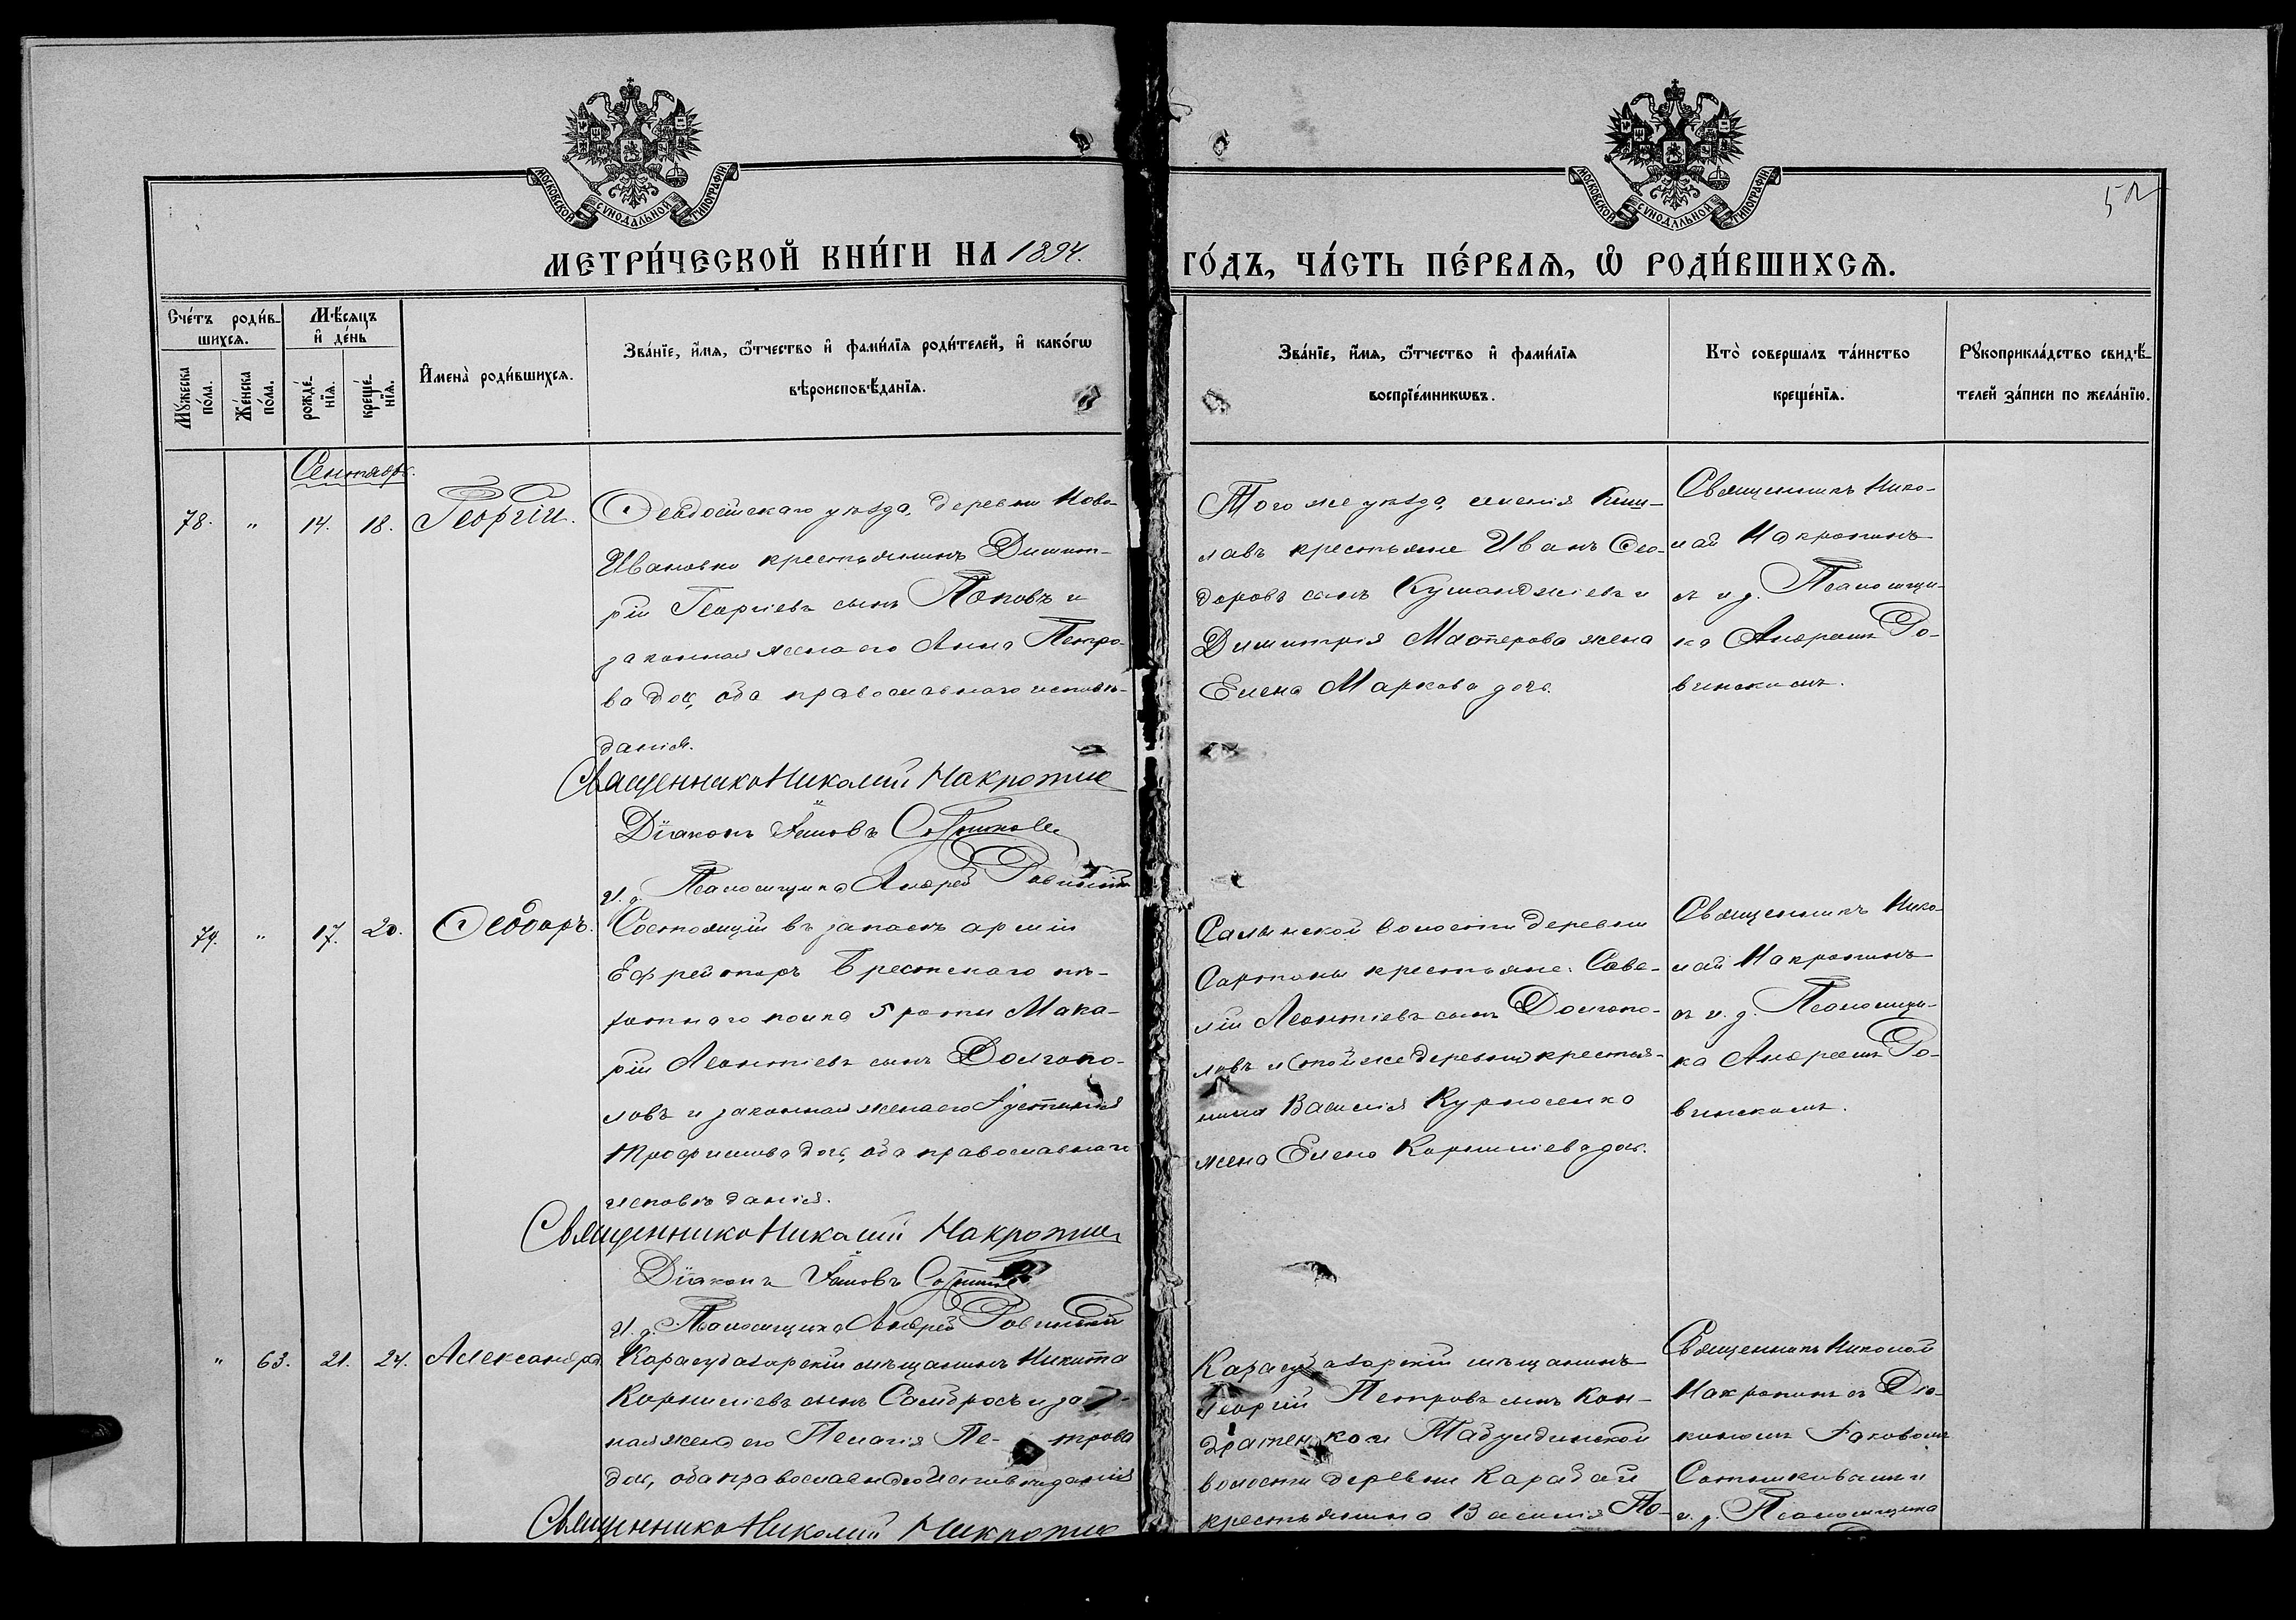 МОСКОВСКОЙ СѴНОДАЛЬНОЙ ТИПОГРАФІИ
МОСКОВСКОЙ СѴНОДАЛЬНОЙ ТИПОГРАФІИ
52
МЕТРИ́ЧЕСКОЙ КНИ́ГИ НА 1894.
ГО́ДЪ, ЧА́СТЬ ПЕ́РВАѦ, Ѡ҆ РОДИ́ВШИХСѦ.
Сче́тъ роди́в-
шихсѧ.
Мѣ́сѧцъ
и҆ де́нь
Мꙋ́жеска
по́ла.
Же́нска
по́ла.
рожде́-
нїѧ.
креще́-
нїѧ.
И҆мена̀ роди́вшихсѧ.
Зва́нїе, и҆́мѧ, ѻ҆́тчество и҆ фами́лїѧ роди́телей, и҆ како́гѡ
вѣроисповѣ́данїѧ.
Зва́нїе, и҆́мѧ, ѻ҆́тчество и҆ фами́лїѧ
воспрїе́мникѡвъ.
Кто̀ соверша́лъ та́инство
креще́нїѧ.
Рꙋкоприкла́дство свидѣ́-
телей за́писи по жела́нїю.
Сентябрь.
78. " 14. 18. Георгій.
Ѳеодосійскаго уѣзда, деревни Ново-
Ивановки крестьянинъ Димит-
рій Георгіевъ сынъ Поповъ и
законная жена его Анна Петро-
ва дочь, оба православнаго исповѣ-
данія.
Священникъ Николай Макротинъ
Діаконъ Іаковъ Сотниковъ
И. д. Псаломщика Андрей Ровинскій
Того же уѣзда, имѣнія
лавъ крестьяне Иванъ Ѳео-
доровъ сынъ и
Димитрія Мастерова жена
Елена Маркова дочь.
Священникъ Нико-
лай Макротинъ
съ и. д. Псаломщи-
ка Андреемъ Ро-
винскимъ.
79. " 17. 20. Ѳеодоръ.
Состоящій въ запасѣ арміи
Ефрейторъ Брестскаго пѣ-
хотнаго полка 5 роты Мака-
рій Леонтіевъ сынъ Долгопо-
ловъ и законная жена его Іустинія
Трофимова дочь, оба православнаго
исповѣданія.
Священникъ Николай Макротинъ
Діаконъ Іаковъ Сотниковъ
И. д. Псаломщика Андрей Ровинскій
Салынской волости деревни
Сартаны крестьяне: Саве-
лій Леонтіевъ сынъ Долгопо-
ловъ и той же деревни крестья-
нина Василія Курносенко
жена Елена Корниліева дочь.
Священникъ Нико-
лай Макротинъ
съ и. д. Псаломщи-
ка Андреемъ Ро-
винскимъ.
" 63. 21. 24. Александра
Карасубазарскій мѣщанинъ Никита
Корниліевъ сынъ и за
ная жена его Пелагія Пе- трова
дочь, оба православнаго исповѣданія
Священникъ Николай Макротинъ
Карасубазарскій мѣщанинъ
Георгій Петровъ сынъ Кон-
дратенко и Табулдинской
волости деревни Карабай
крестьянина Василія По-
Священникъ Николай
Макротинъ съ Діа-
кономъ Іаковомъ
Сотниковымъ и
и. д. Псаломщика